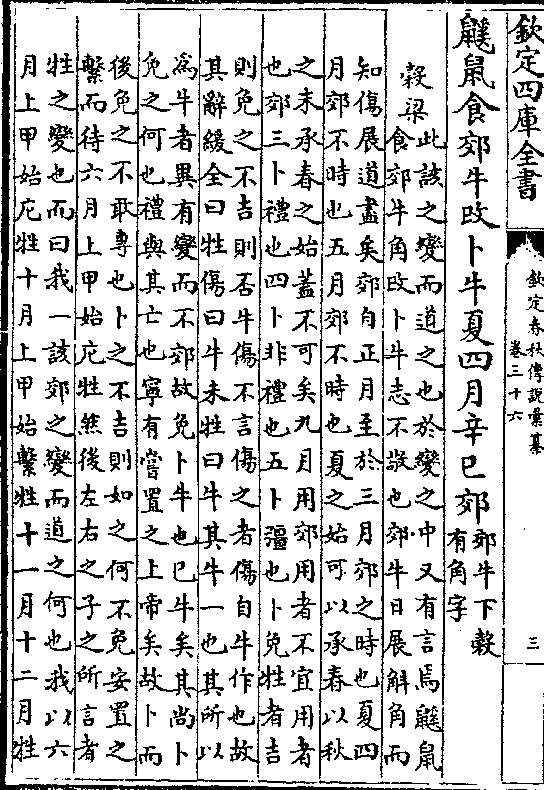 欽定四庫全書
欽定春秋傳說彙纂
卷三十六
三
鼷鼠食郊牛改卜牛夏四月辛巳郊
郊牛下穀
有角字
穀梁
此該之變而道之也於變之中又有言焉鼷鼠
食郊牛角改卜牛志不敬也郊牛日展解角而
知傷展道盡矣郊自正月至於三月郊之時也夏四
月郊不時也五月郊不時也夏之始可以承春以秋
之末承春之始蓋不可矣九月用郊用者不宜用者
也郊三卜禮也四卜非禮也五卜彊也卜免牲者吉
則免之不吉則否牛傷不言傷之者傷自牛作也故
其辭緩全曰牲傷曰牛未牲曰牛其牛一也其所以
爲牛者異有變而不郊故免卜牛也已牛矣其尚卜
免之何也禮與其亡也寧有嘗置之上帝矣故卜而
後免之不敢專也卜之不吉則如之何不免安置之
繫而待六月上甲始庀牲然後左右之子之所言者
牲之變也而曰我一該郊之變而道之何也我以六
月上甲始庀牲十月上甲始繫牲十一月十二月牲